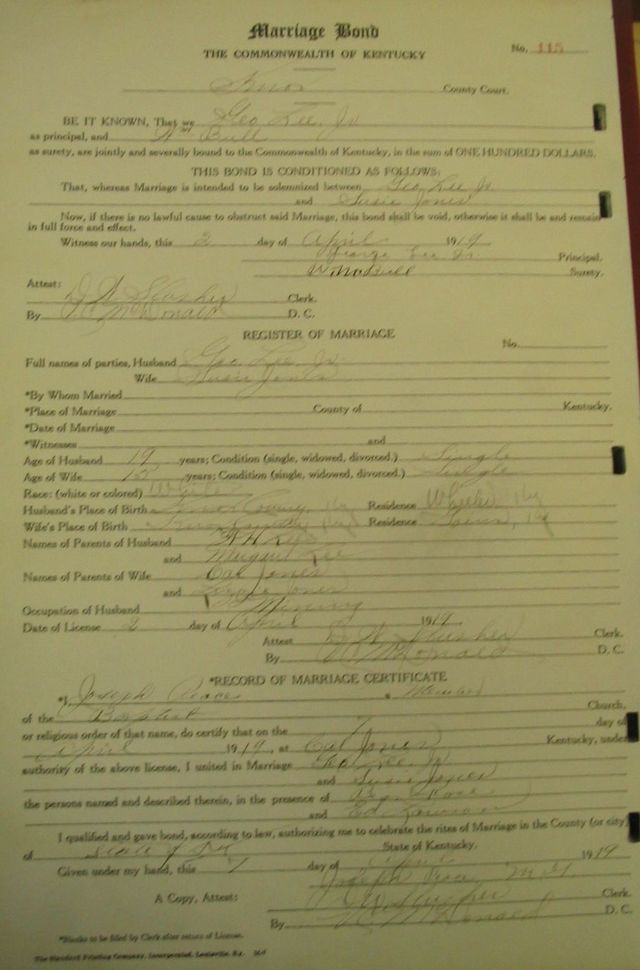 Marriage Bond
THE COMMONWEALTH OF KENTUCKY
No. 115
Knox County Court.
BE IT KNOWN, That we Geo Lee, Jr
as principal, and Wm Bull
as surety, are jointly and severally bound to the Commonwealth of Kentucky, in the sum of ONE HUNDRED DOLLARS.
THIS BOND IS CONDITIONED AS FOLLOWS:
That, whereas Marriage is intended to be solemnized between Geo Lee Jr
and Susie Jones
Now, if there is no lawful cause to obstruct said Marriage, this bond shall be void, otherwise it shall be and remain
in full force and effect.
Witness our hands, this 2 day of April 1919
George Lee Jr. Principal.
Wm Bull Surety.
Attest:
D. W. Slusher Clerk.
By McDonald D. C.
REGISTER OF MARRIAGE
No.
Full names of parties, Husband Geo Lee, Jr.
Wife Susie Jones
*By Whom Married
*Place of Marriage County of Kentucky.
*Date of Marriage
*Witnesses and
Age of Husband 19 years; Condition (single, widowed, divorced.) Single
Age of Wife years; Condition (single, widowed, divorced.) Single
Race: (white or colored) White
Husband's Place of Birth Ky Residence Ky
Wife's Place of Birth Residence Ky
Names of Parents of Husband
and Lee
Names of Parents of Wife Jones
and Jones
Occupation of Husband Mining
Date of License 2 day of April 1919
Attest D. W. Slusher Clerk.
By McDonald D. C.
*RECORD OF MARRIAGE CERTIFICATE
*I, Joseph a
of the Baptist Church,
or religious order of that name, do certify that on the 7 day of
April 1919, at Jones Kentucky, under
authority of the above license, I united in Marriage Geo Lee, Jr
and Susie Jones
the persons named and described therein, in the presence of
and Ed
I qualified and gave bond, according to law, authorizing me to celebrate the rites of Marriage in the County (or city)
of State of Ky State of Kentucky.
Given under my hand, this 7 day of April 1919
Joseph
A Copy, Attest: D W Slusher Clerk.
By McDonald D. C.
*Blanks to be filled by Clerk after return of License.
The Standard Printing Company, Incorporated, Louisville, Ky.